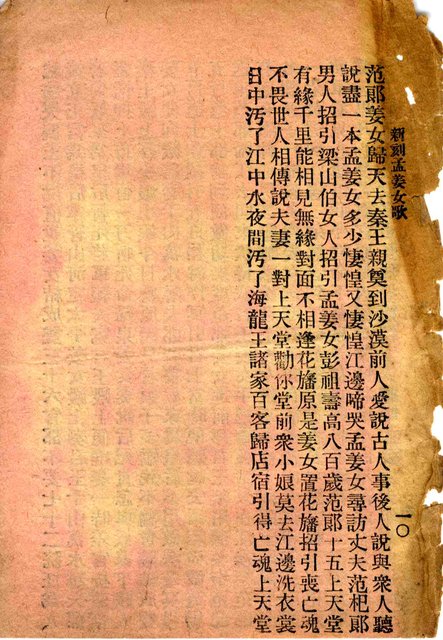 新刻孟姜女歌
一〇
范郞姜女歸天去秦王親奠到沙漠前人愛說古人事後人說與衆人聽
說盡一本孟姜女多少悽惶又悽惶江邊啼哭孟姜女尋訪丈夫范杞郞
男人招引梁山伯女人招引孟姜女彭祖壽高八百歲范郞十五上天堂
有緣千里能相見無緣對面不相逢花旛原是姜女置花旛招引喪亡魂
不畏世人相傳說夫妻一對上天堂勸你堂前衆小娘莫去江邊洗衣裳
日中汚了江中水夜間汚了海龍王諸家百客歸店宿引得亡魂上天堂